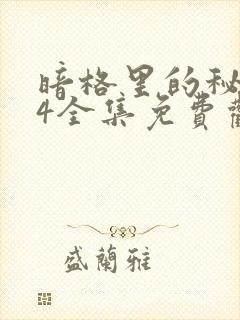 暗格里的秘
4全集免費
盛蘭雅